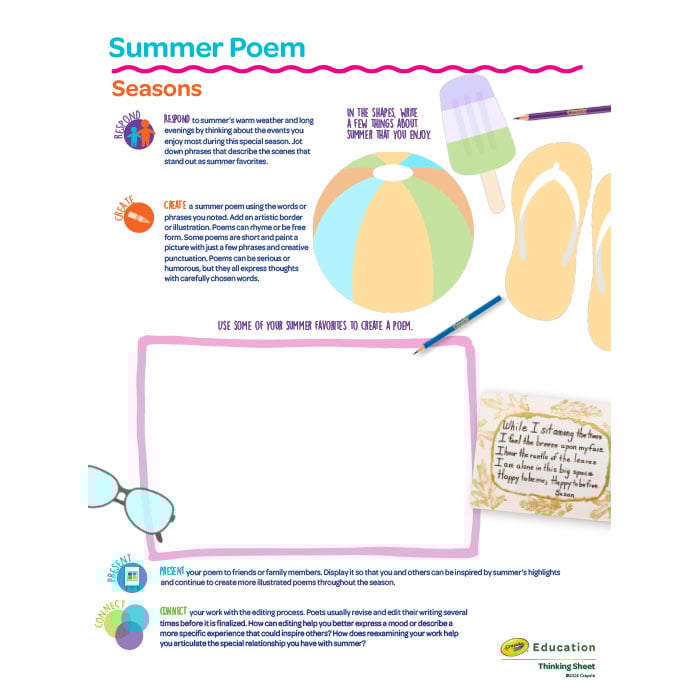 Summer Poem
Seasons
RESPOND
RESPOND to summer's warm weather and long
evenings by thinking about the events you
enjoy most during this special season. Jot
down phrases that describe the scenes that
stand out as summer favorites.
IN THE SHAPES, WRITE
A FEW THINGS ABOUT
SUMMER THAT YOU ENJOY.
CREATE
CREATE a summer poem using the words or
phrases you noted. Add an artistic border
or illustration. Poems can rhyme or be free
form. Some poems are short and paint a
picture with just a few phrases and creative
punctuation. Poems can be serious or
humorous, but they all express thoughts
with carefully chosen words.
USE SOME OF YOUR SUMMER FAVORITES TO CREATE A POEM.
While I sit among the trees
I feel the breeze upon my face
I hear the rustle of the leaves
I am alone in this big space
Happy to be me; Happy to be free.
Susan
PRESENT
PRESENT your poem to friends or family members. Display it so that you and others can be inspired by summer's highlights
and continue to create more illustrated poems throughout the season.
CONNECT
CONNECT your work with the editing process. Poets usually revise and edit their writing several
times before it is finalized. How can editing help you better express a mood or describe a
more specific experience that could inspire others? How does reexamining your work help
you articulate the special relationship you have with summer?
Crayola Education
Thinking Sheet
©2024 Crayola